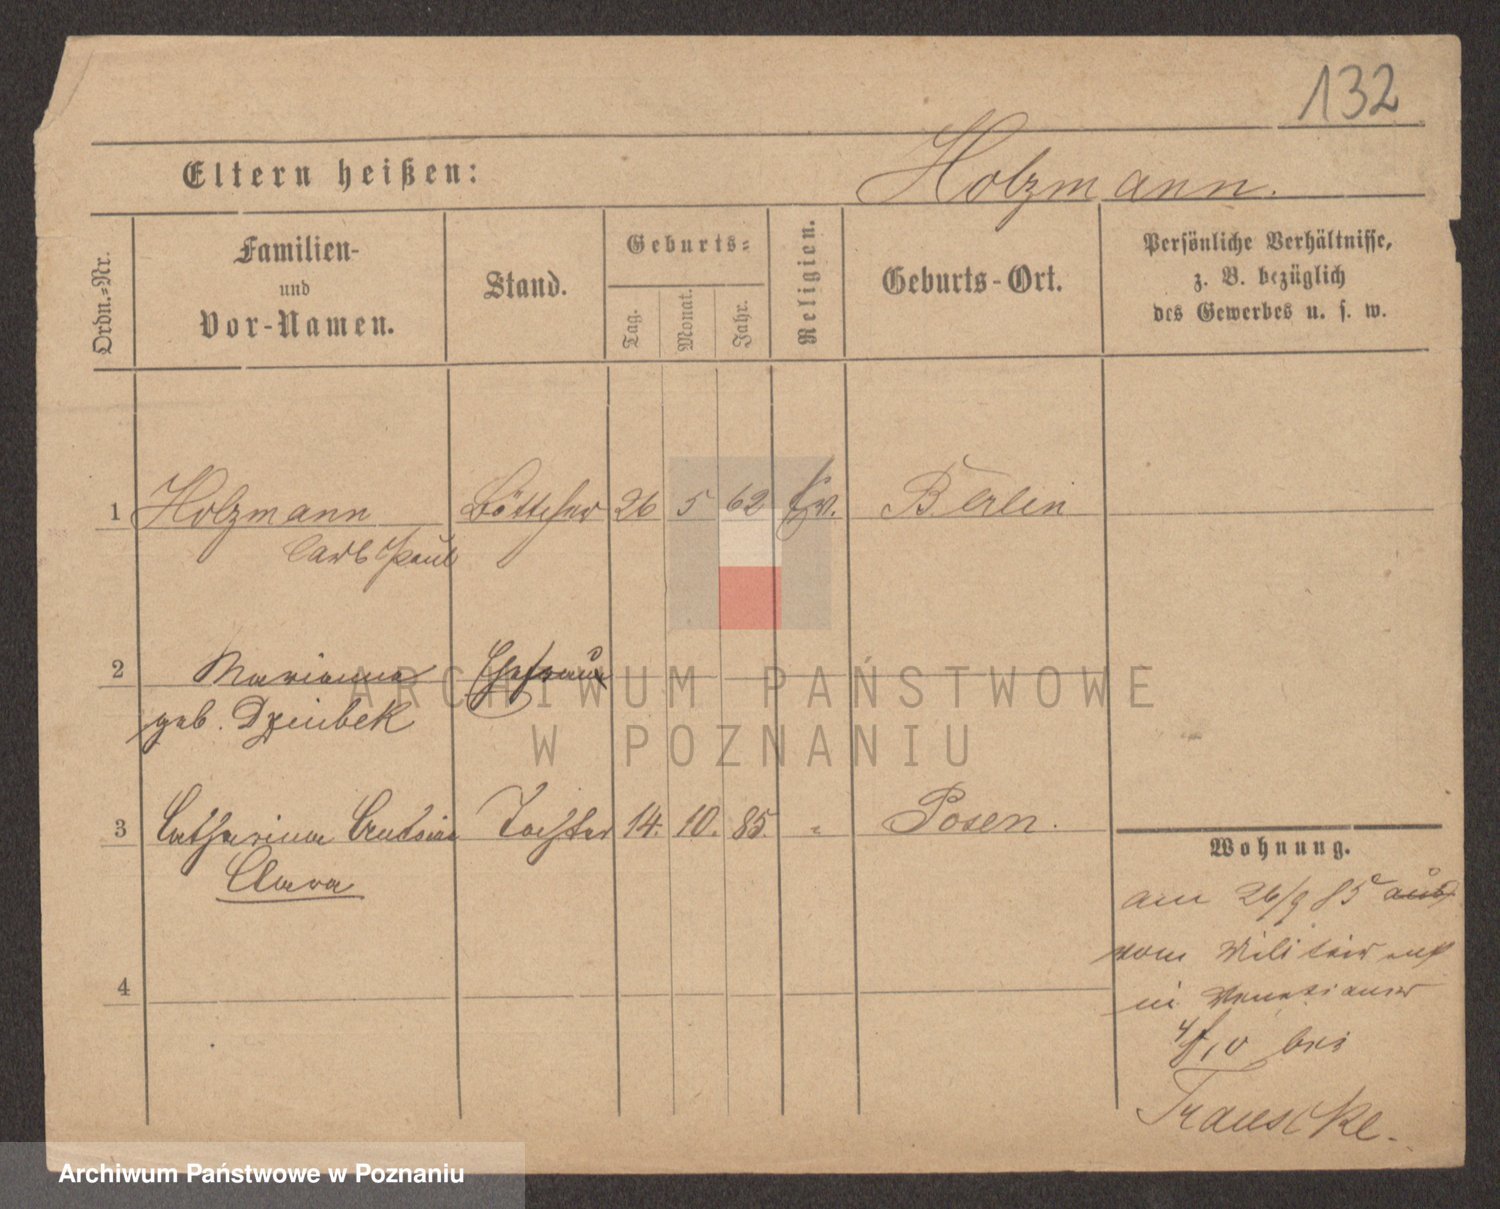 132
Eltern heißen: Holzmann.
Ordn.-Nr.
Familien- und Vor-Namen.
Stand.
Geburts-
Tag. Monat. Jahr.
Religien.
Geburts-Ort.
Persönliche Verhältnisse,
z. B. bezüglich
des Gewerbes u. s. w.
1 Holzmann Böttcher 26 5 62 Ev. Berlin
Carl Paul
2 Marianna Ehefrau
geb. Dziubek
3 Catharina Tochter 14. 10. 85. " Posen.
Clara
4
Wohnung.
am 26/9 85
vom Militair
in Venetianer
bei
ARCHIWUM PAŃSTWOWE
W POZNANIU
Archiwum Państwowe w Poznaniu